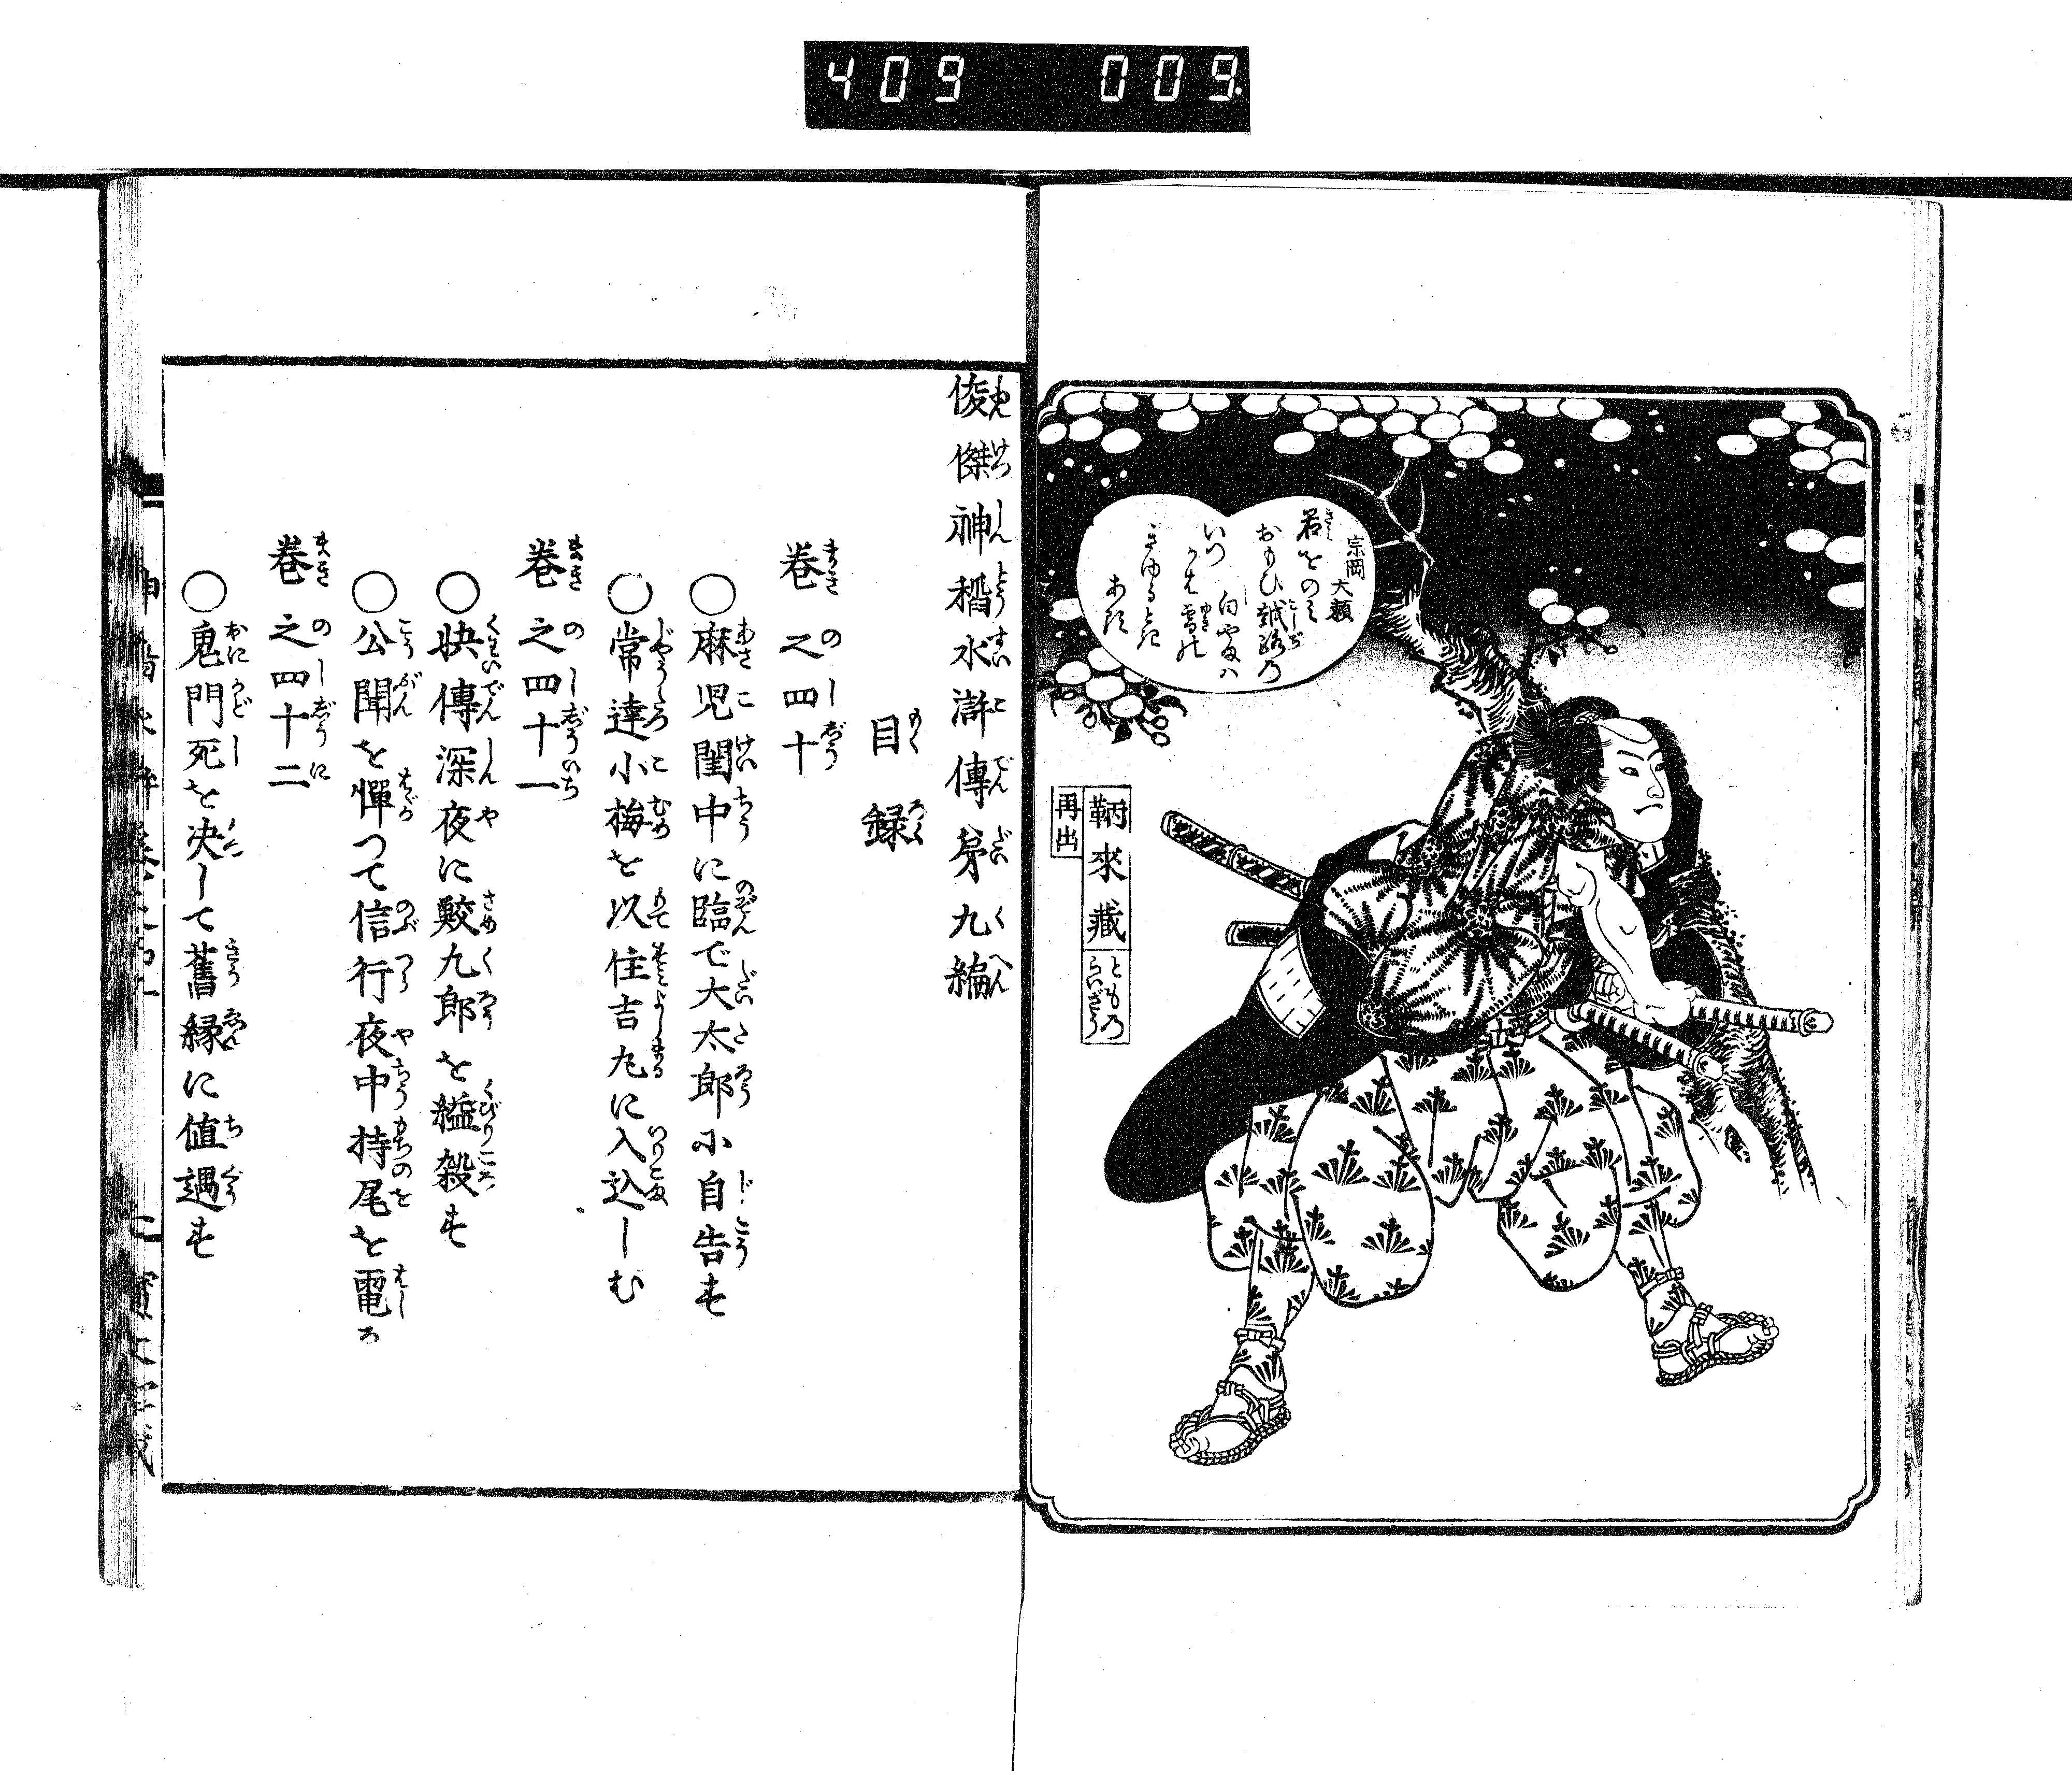 409 009.
宗岡
大頼
君をのみ
おもひ越路の
いつ
白山ハ
雪の
きゆるとき
ある
鞆來藏
ともの
らいざう
再出
俊傑神稲水滸傳第九編
目録
巻之四十
○麻児閨中に臨で大太郎小自告す
○常達小梅を以住吉丸に入込しむ
巻之四十一
○快傳深夜に鮫九郎を縊殺す
○公聞を憚つて信行夜中持尾を竄る
巻之四十二
○鬼門死を决して舊縁に値遇す